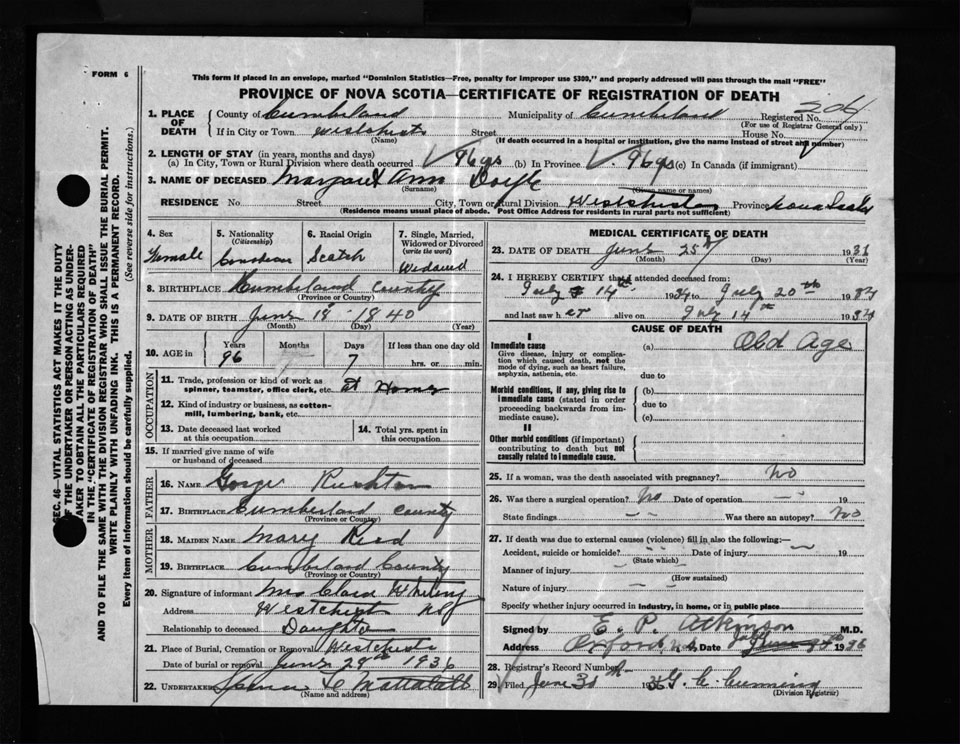 FORM 6
This form if placed in an envelope, marked "Dominion Statistics—Free, penalty for improper use $300," and properly addressed will pass through the mail "FREE"
PROVINCE OF NOVA SCOTIA—CERTIFICATE OF REGISTRATION OF DEATH
1. PLACE OF DEATH County of Cumberland Municipality of Cumberland Registered No.
(For use of Registrar General only)
If in City or Town Westchester Street House No.
(Name) (If death occurred in a hospital or institution, give the name instead of street and number)
2. LENGTH OF STAY (in years, months and days)
(a) In City, Town or Rural Division where death occurred 96 yrs (b) In Province 96 yrs (c) In Canada (if immigrant)
3. NAME OF DECEASED Margaret Ann Doyle
(Surname) (Given name or names)
RESIDENCE No Street City, Town or Rural Division Westchester Province Nova Scotia
(Residence means usual place of abode. Post Office Address for residents in rural parts not sufficient)
4. Sex Female
5. Nationality (Citizenship) Canadian
6. Racial Origin Scotch
7. Single, Married, Widowed or Divorced (write the word) Widowed
8. BIRTHPLACE Cumberland County
(Province or Country)
9. DATE OF BIRTH June 18 1840
(Month) (Day) (Year)
10. AGE in Years 96 Months Days 7 If less than one day old hrs. or min.
OCCUPATION
11. Trade, profession or kind of work as spinner, teamster, office clerk, etc. at Home
12. Kind of industry or business, as cotton-mill, lumbering, bank, etc.
13. Date deceased last worked at this occupation
14. Total yrs. spent in this occupation
15. If married give name of wife or husband of deceased
FATHER
16. NAME George Rushton
17. BIRTHPLACE Cumberland County
(Province or Country)
MOTHER
18. MAIDEN NAME Mary Reid
19. BIRTHPLACE Cumberland County
(Province or Country)
20. Signature of informant Mrs Clara Whiting
Address Westchester
Relationship to deceased Daughter
21. Place of Burial, Cremation or Removal Westchester
Date of burial or removal June 28th 1936
22. Undertaker
(Name and address)
MEDICAL CERTIFICATE OF DEATH
23. DATE OF DEATH June 25th 1936
(Month) (Day) (Year)
24. I HEREBY CERTIFY that I attended deceased from:
July 14th 1934 to July 20th 1934
and last saw her alive on July 14th 1934
CAUSE OF DEATH
I
Immediate cause
Give disease, injury or complication which caused death, not the mode of dying, such as heart failure, asphyxia, asthenia, etc.
(a) Old Age
due to
Morbid conditions, if any, giving rise to immediate cause (stated in order proceeding backwards from immediate cause).
(b)
due to
(c)
II
Other morbid conditions (if important) contributing to death but not causally related to immediate cause.
25. If a woman, was the death associated with pregnancy? No
26. Was there a surgical operation? No Date of operation 19
State findings Was there an autopsy? No
27. If death was due to external causes (violence) fill in also the following:—
Accident, suicide or homicide? Date of injury 19
(State which)
Manner of injury
(How sustained)
Nature of injury
Specify whether injury occurred in industry, in home, or in public place
Signed by E. P. Atkinson M.D.
Address Oxford N.S. Date 1936
28. Registrar's Record Number
29. Filed June 30 1936 G. C. Cumming
(Division Registrar)
SEC. 46—VITAL STATISTICS ACT MAKES IT THE DUTY
OF THE UNDERTAKER OR PERSON ACTING AS UNDER-
TAKER TO OBTAIN ALL THE PARTICULARS REQUIRED
IN THE "CERTIFICATE OF REGISTRATION OF DEATH"
AND TO FILE THE SAME WITH THE DIVISION REGISTRAR WHO SHALL ISSUE THE BURIAL PERMIT.
WRITE PLAINLY WITH UNFADING INK. THIS IS A PERMANENT RECORD.
Every item of information should be carefully supplied. (See reverse side for instructions.)